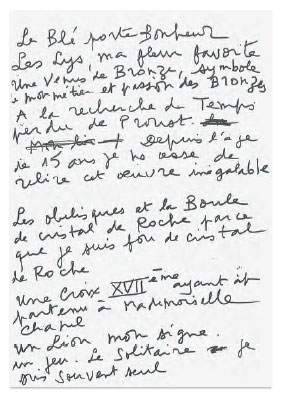 Le Blé porte Bonheur
Les Lys, ma fleur favorite
Une Vénus de Bronze, symbole
mon métier et passion des Bronzes
A la recherche du Temps
perdu de Proust.
Depuis l'age
de 15 ans je ne cesse de
relire cet œuvre inégalable
Les obélisques et la Boule
de cristal de Roche parce
que je suis fou de cristal
de Roche
Une Croix XVII ème ayant
partenu à Mademoiselle
Chanel
un Lion mon signe.
un jeu. Le Solitaire je
suis souvent seul